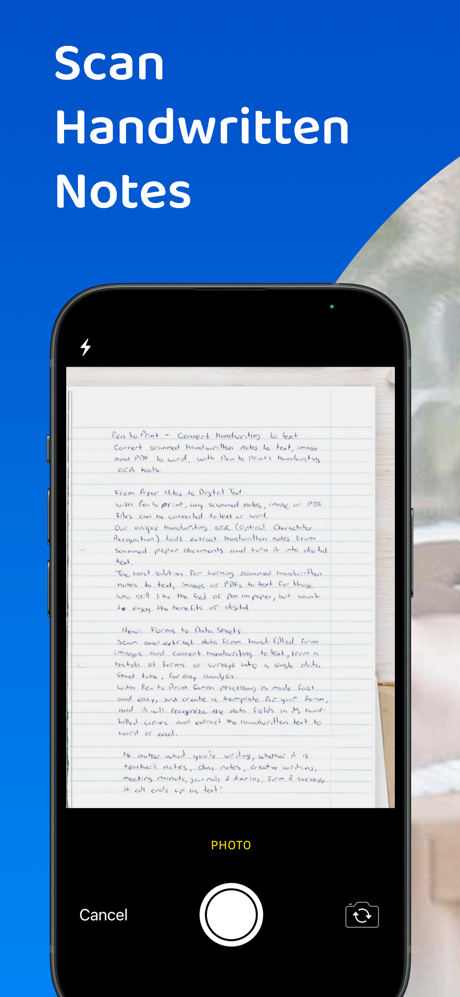 Scan
Handwritten
Notes
Pen to Print - Convert handwriting to text
Convert scanned handwritten notes to text, image
and PDF to word, with Pen to Print's handwriting
OCR tools.
From Paper Notes to Digital Text
With Pen to print, any scanned notes, image or PDF
files can be converted to text or word.
Our unique handwriting OCR (Optical Character
Recognition) tools extract handwritten notes from
scanned paper documents and turn it into digital
text.
The best solution for turning scanned handwritten
notes to text, images or PDFs to text for those
who still like the feel of pen on paper, but want
to enjoy the benefits of digital
New! Forms to Data Sheets
Scan and extract data from hand-filled form
images and convert handwriting to text, from a
batch of forms or surveys into a single data
sheet table, for easy analysis.
With Pen to Print form processing is made fast
and easy, just create a template for your form,
and it will recognize the data fields in hand-
filled copies and extract the handwritten text to
word or excel.
No matter what you're writing, whether it is
teacher's notes, class notes, creative writing,
meeting minute, journals & diaries, form & surveys
it all ends up as text!
PHOTO
Cancel